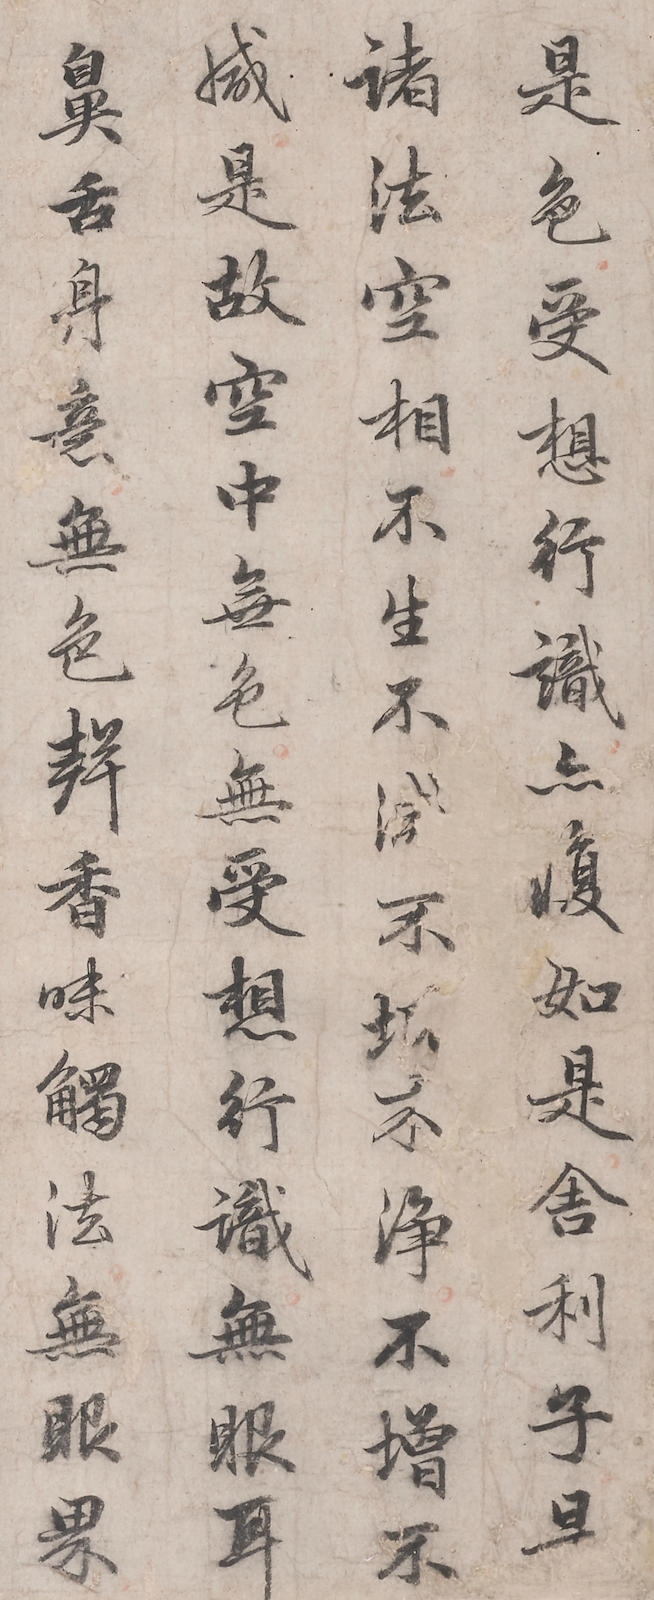 是色受想行識亦復如是舍利子是
諸法空相不生不滅不垢不淨不增不
減是故空中無色無受想行識無眼耳
鼻舌身意無色聲香味觸法無眼界